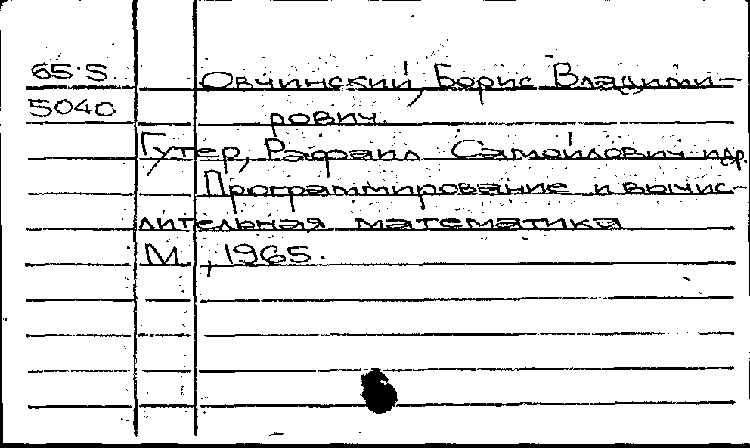 65·5 Овчинский, Борис Владими-
5040 рович.
Гутер, Рафаил Самойлович и др.
Программирование и вычис-
лительная математика
М., 1965.